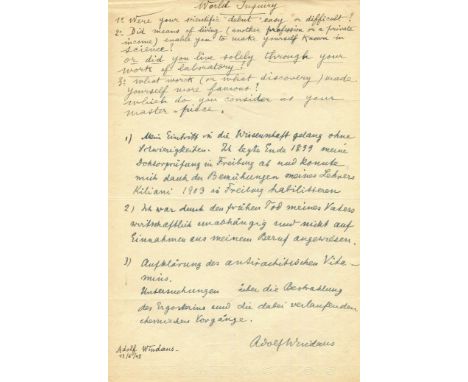 World Inquiry
1º Were your scientific debut easy or difficult?
2º Did means of living (another profession or a private
income) enable you to make yourself known in
science?
or did you live solely through your
work of laboratory?
3º What work (or what discovery) made
yourself more famous?
which do you consider as your
master-piece.
1) Mein Eintritt in die Wissenschaft gelang ohne
Schwierigkeiten. Ich legte Ende 1899 meine
Doktorprüfung in Freiburg ab und konnte
mich durch die Bemühungen meines Lehrers
Kiliani 1903 in Freiburg habilitieren
2) Ich war durch den frühen Tod meines Vaters
wirtschaftlich unabhängig und nicht auf
Einnahmen aus meinem Beruf angewiesen.
3) Aufklärung des antirachitischen Vita-
mins.
Untersuchungen über die Bestrahlung
des Ergosterins und die dabei verlaufenden
chemischen Vorgänge.
Adolf Windaus
Adolf Windaus-